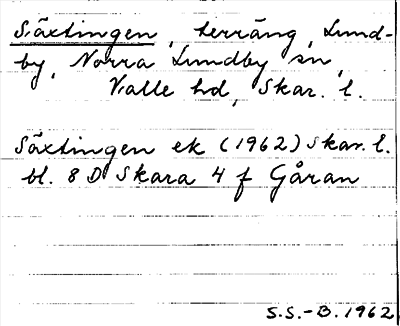 Säxtingen, terräng, Lund-
by, Norra Lundby sn,
Valle hd, Skar. l.
Säxtingen ek (1962) Skar. l.
bl. 8 D Skara 4 f Gåran
S.S.-B. 1962